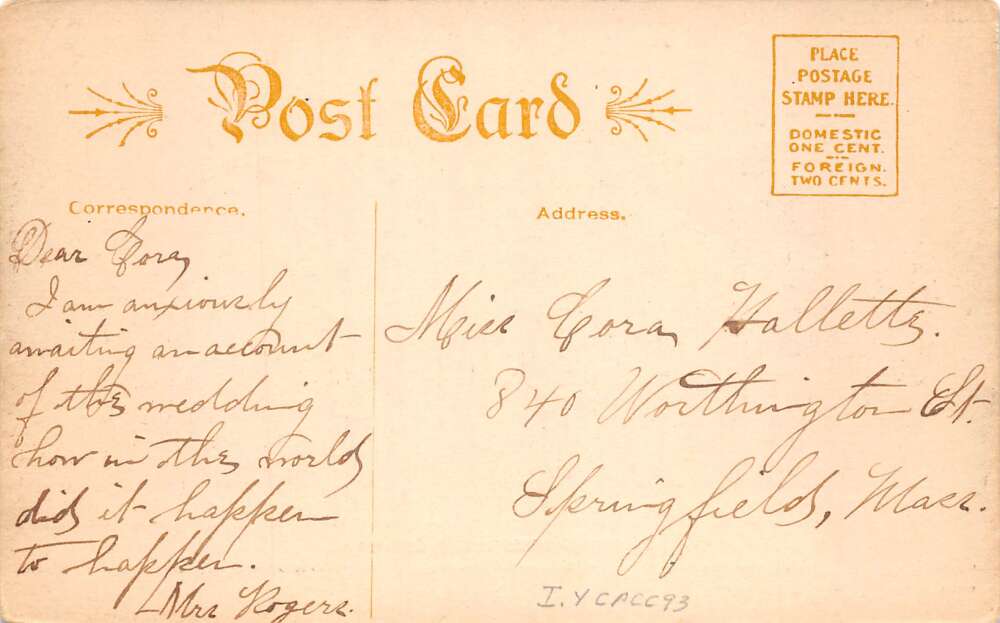 Post Card
PLACE
POSTAGE
STAMP HERE.
DOMESTIC
ONE CENT.
FOREIGN.
TWO CENTS.
Correspondence.
Address.
Dear Cora,
I am anxiously
awaiting an account
of the wedding
how in the world
did it happen
to happen.
Mrs Rogers.
Miss Cora Hallett.
840 Worthington St.
Springfield, Mass.
I.YCPCC93